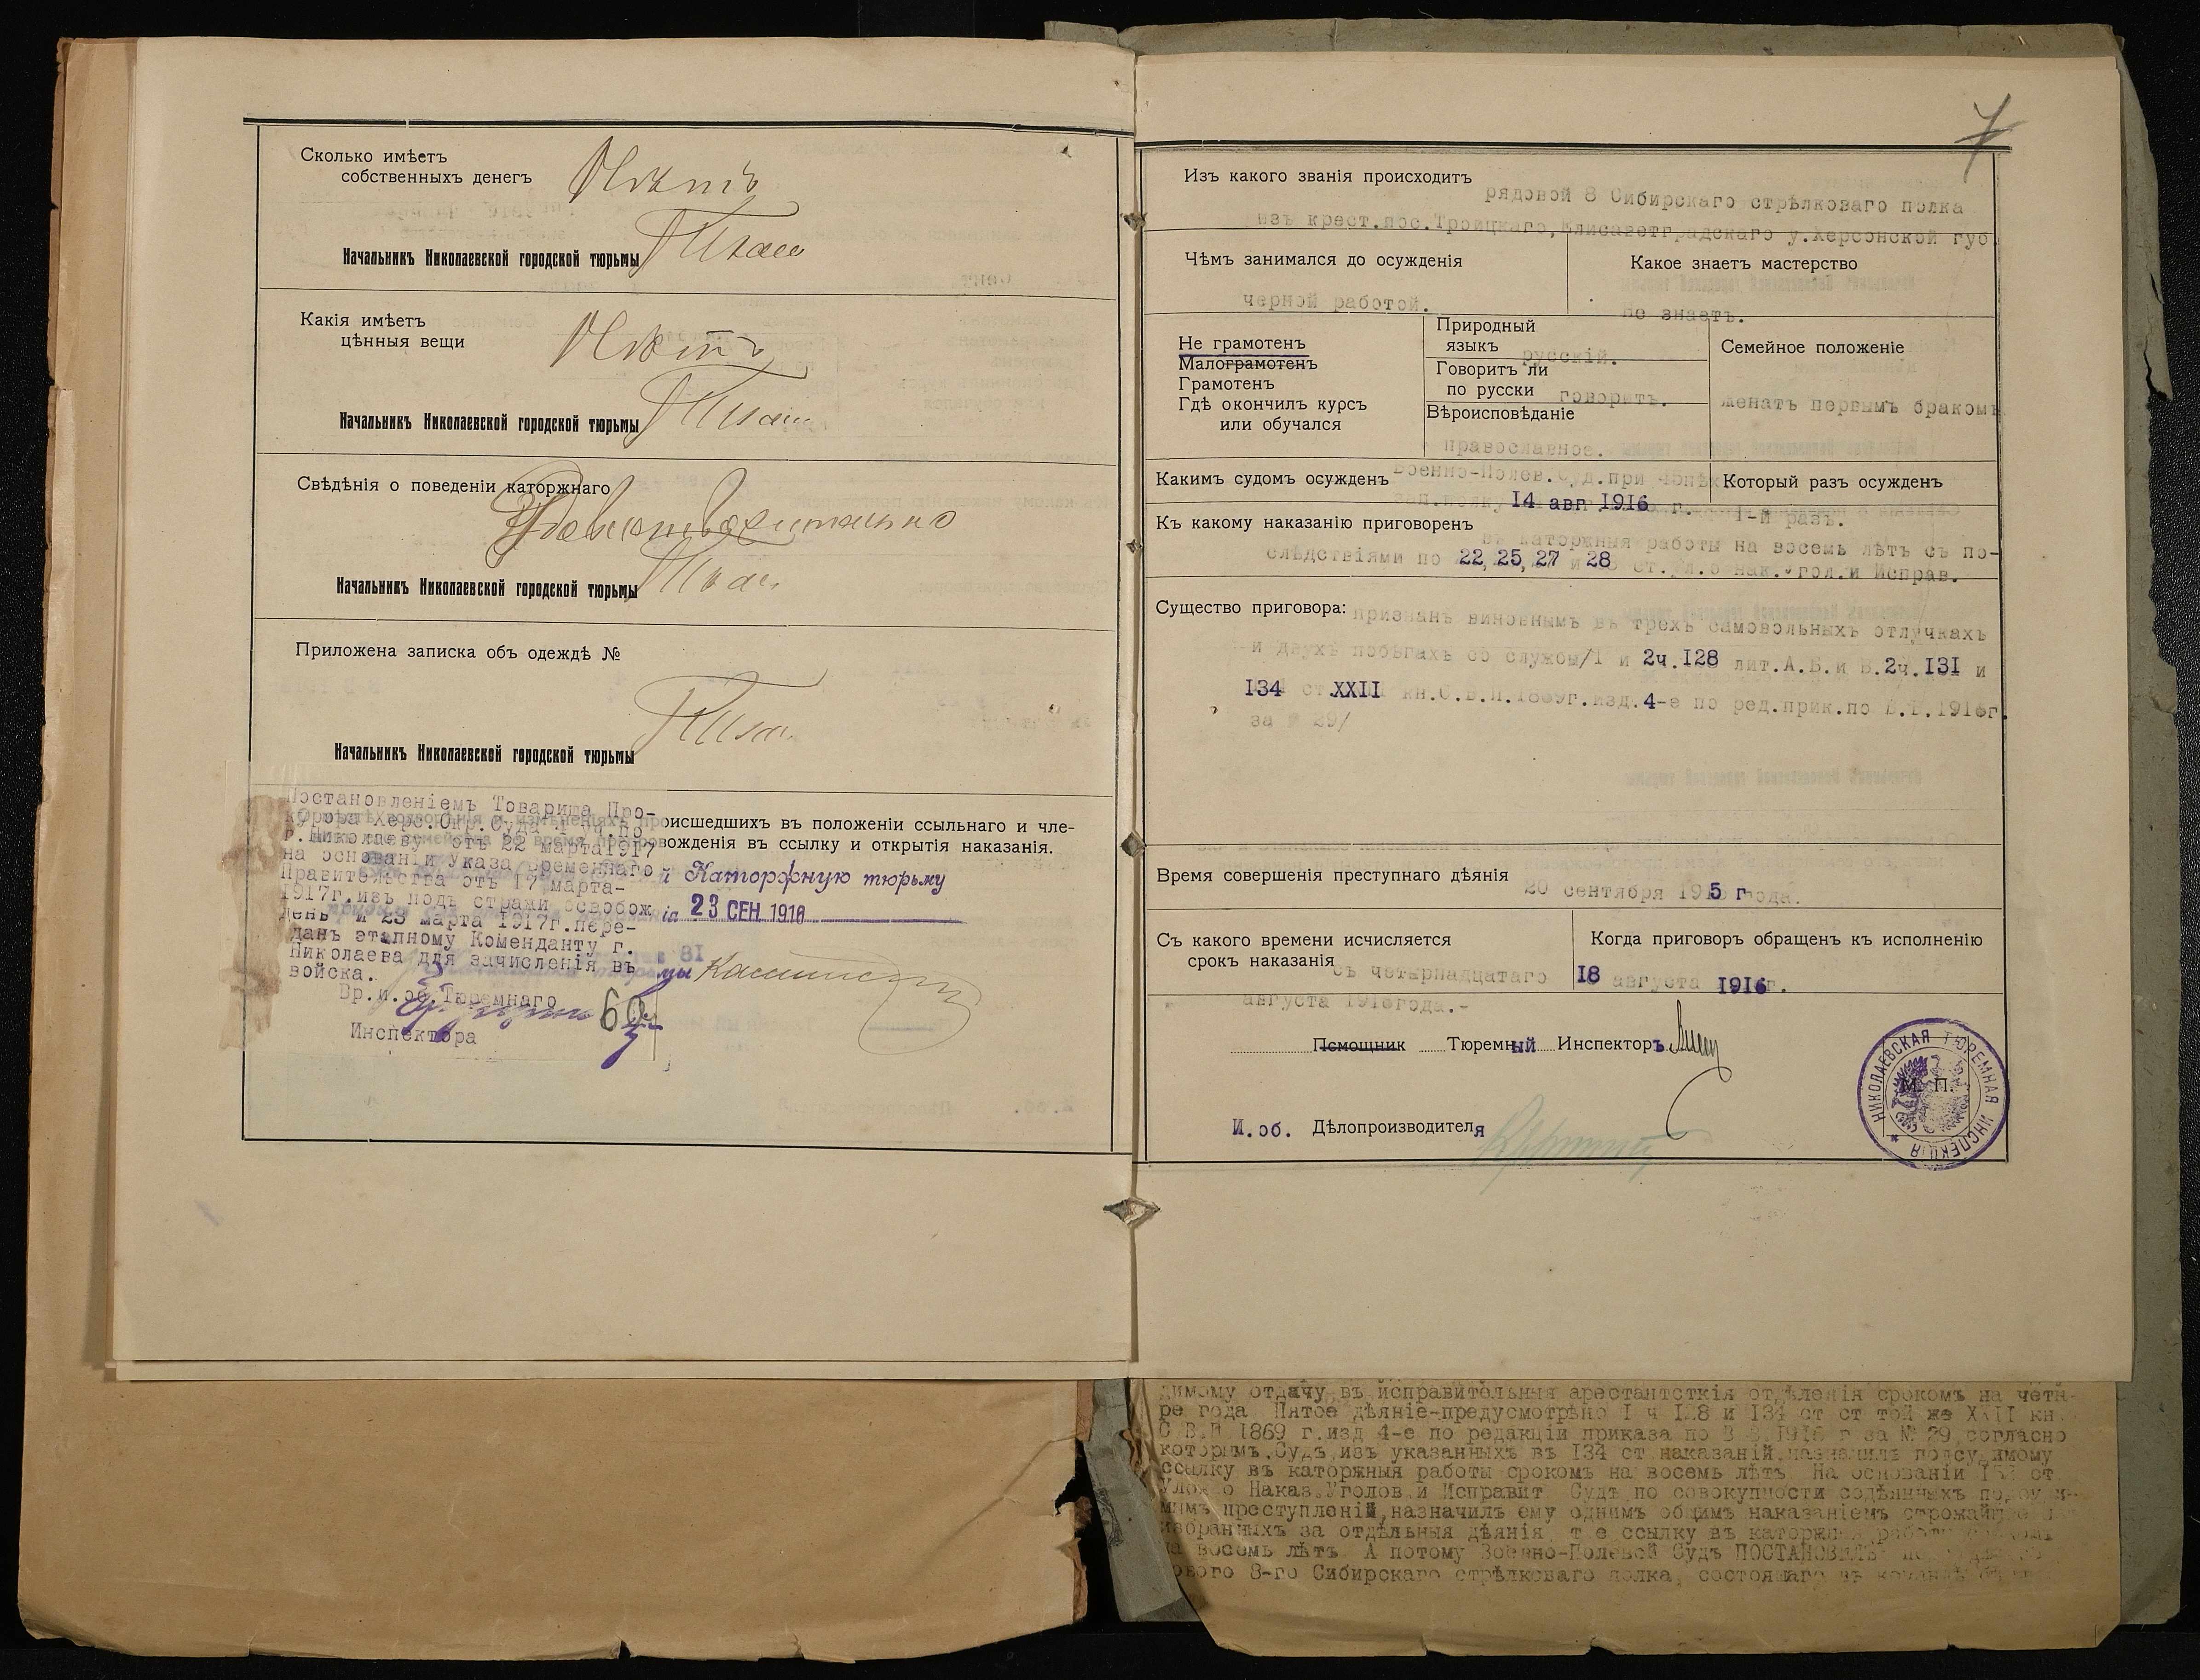 Сколько имѣетъ
собственныхъ денегъ
Нѣтъ
Начальникъ Николаевской городской тюрьмы
Какія имѣетъ
цѣнныя вещи
Нѣтъ
Начальникъ Николаевской городской тюрьмы
Свѣдѣнія о поведеніи каторжнаго
Начальникъ Николаевской городской тюрьмы
Приложена записка объ одеждѣ №
Начальникъ Николаевской городской тюрьмы
Постановленіемъ Товарища Про-
курора Херс.Окр.Суда 1 уч.по
г.Николаеву отъ 22 марта 1917
на основаніи Указа Временнаго
Правительства отъ 17 марта-
1917г.изъ подъ стражи освобож
день и 23 марта 1917г.пере-
данъ этапному Коменданту г.
Николаева для зачисленія въ
войска.
Вр.и.об.Тюремнаго
Инспектора
60
происшедшихъ въ положеніи ссыльнаго и чле-
вожденія въ ссылку и открытія наказанія.
й Каторжную тюрьму
ія 23 СЕН 1916
81
мы
7
Изъ какого званія происходитъ
рядовой 8 Сибирскаго стрѣлковаго полка
изъ крест.пос.Троицкаго,Елисаветградскаго у.Херсонской губ.
Чѣмъ занимался до осужденія
черной работой.
Какое знаетъ мастерство
не знаетъ.
Не грамотенъ
Малограмотенъ
Грамотенъ
Гдѣ окончилъ курсъ
или обучался
Природный
языкъ русскій.
Говоритъ ли
по русски говоритъ.
Вѣроисповѣданіе
православное.
Семейное положеніе
женатъ первымъ бракомъ
Какимъ судомъ осужденъ Военно-Полев.Суд.при 45пѣх
зап.полку 14 авг 1916 г.
Который разъ осужденъ
1-й разъ.
Къ какому наказанію приговоренъ
въ каторжныя работы на восемь лѣтъ съ по-
слѣдствіями по 22,25,27 и 28 ст.Ул.о нак.Угол.и Исправ.
Существо приговора: признанъ виновнымъ въ трехъ самовольныхъ отлучкахъ
и двухъ побѣгахъ со службы/1 и 2ч.128 лит.А.Б.и В.2ч.131 и
134 ст.XXII кн.С.В.П.1869г.изд.4-е по ред.прик.по В.В.1915г.
за № 29/
Время совершенія преступнаго дѣянія 20 сентября 1915 года.
Съ какого времени исчисляется
срокъ наказанія съ четырнадцатаго
августа 1916года.-
Когда приговоръ обращенъ къ исполненію
18 августа 1916г.
Помощник Тюремный Инспекторъ
И.об. Дѣлопроизводителя
М. П.
НИКОЛАЕВСКАЯ ТЮРЕМНАЯ ИНСПЕКЦІЯ
димому отдачу въ исправительныя арестантсткія отдѣленія срокомъ на четы-
ре года Пятое дѣяніе-предусмотрѣно 1 ч 128 и 134 ст ст той же XXII кн
С.В.П 1869 г.изд 4-е по редакціи приказа по В.В.1915 г за № 29,согласно
которымъ,Судъ,изъ указанныхъ въ 134 ст наказаній,назначилъ подсудимому
ссылку въ каторжныя работы срокомъ на восемь лѣтъ На основаніи 152 ст
Улож о Наказ.Уголов.и Исправит Судъ по совокупности содѣянныхъ подсуди-
мымъ преступленій,назначилъ ему однимъ общимъ наказаніемъ строжайшее изъ
избранныхъ за отдѣльныя дѣянія т е ссылку въ каторжныя работы срокомъ
на восемь лѣтъ А потому Военно-Полевой Судъ ПОСТАНОВИЛЪ
дового 8-го Сибирскаго стрѣлковаго полка, состоящаго въ командѣ